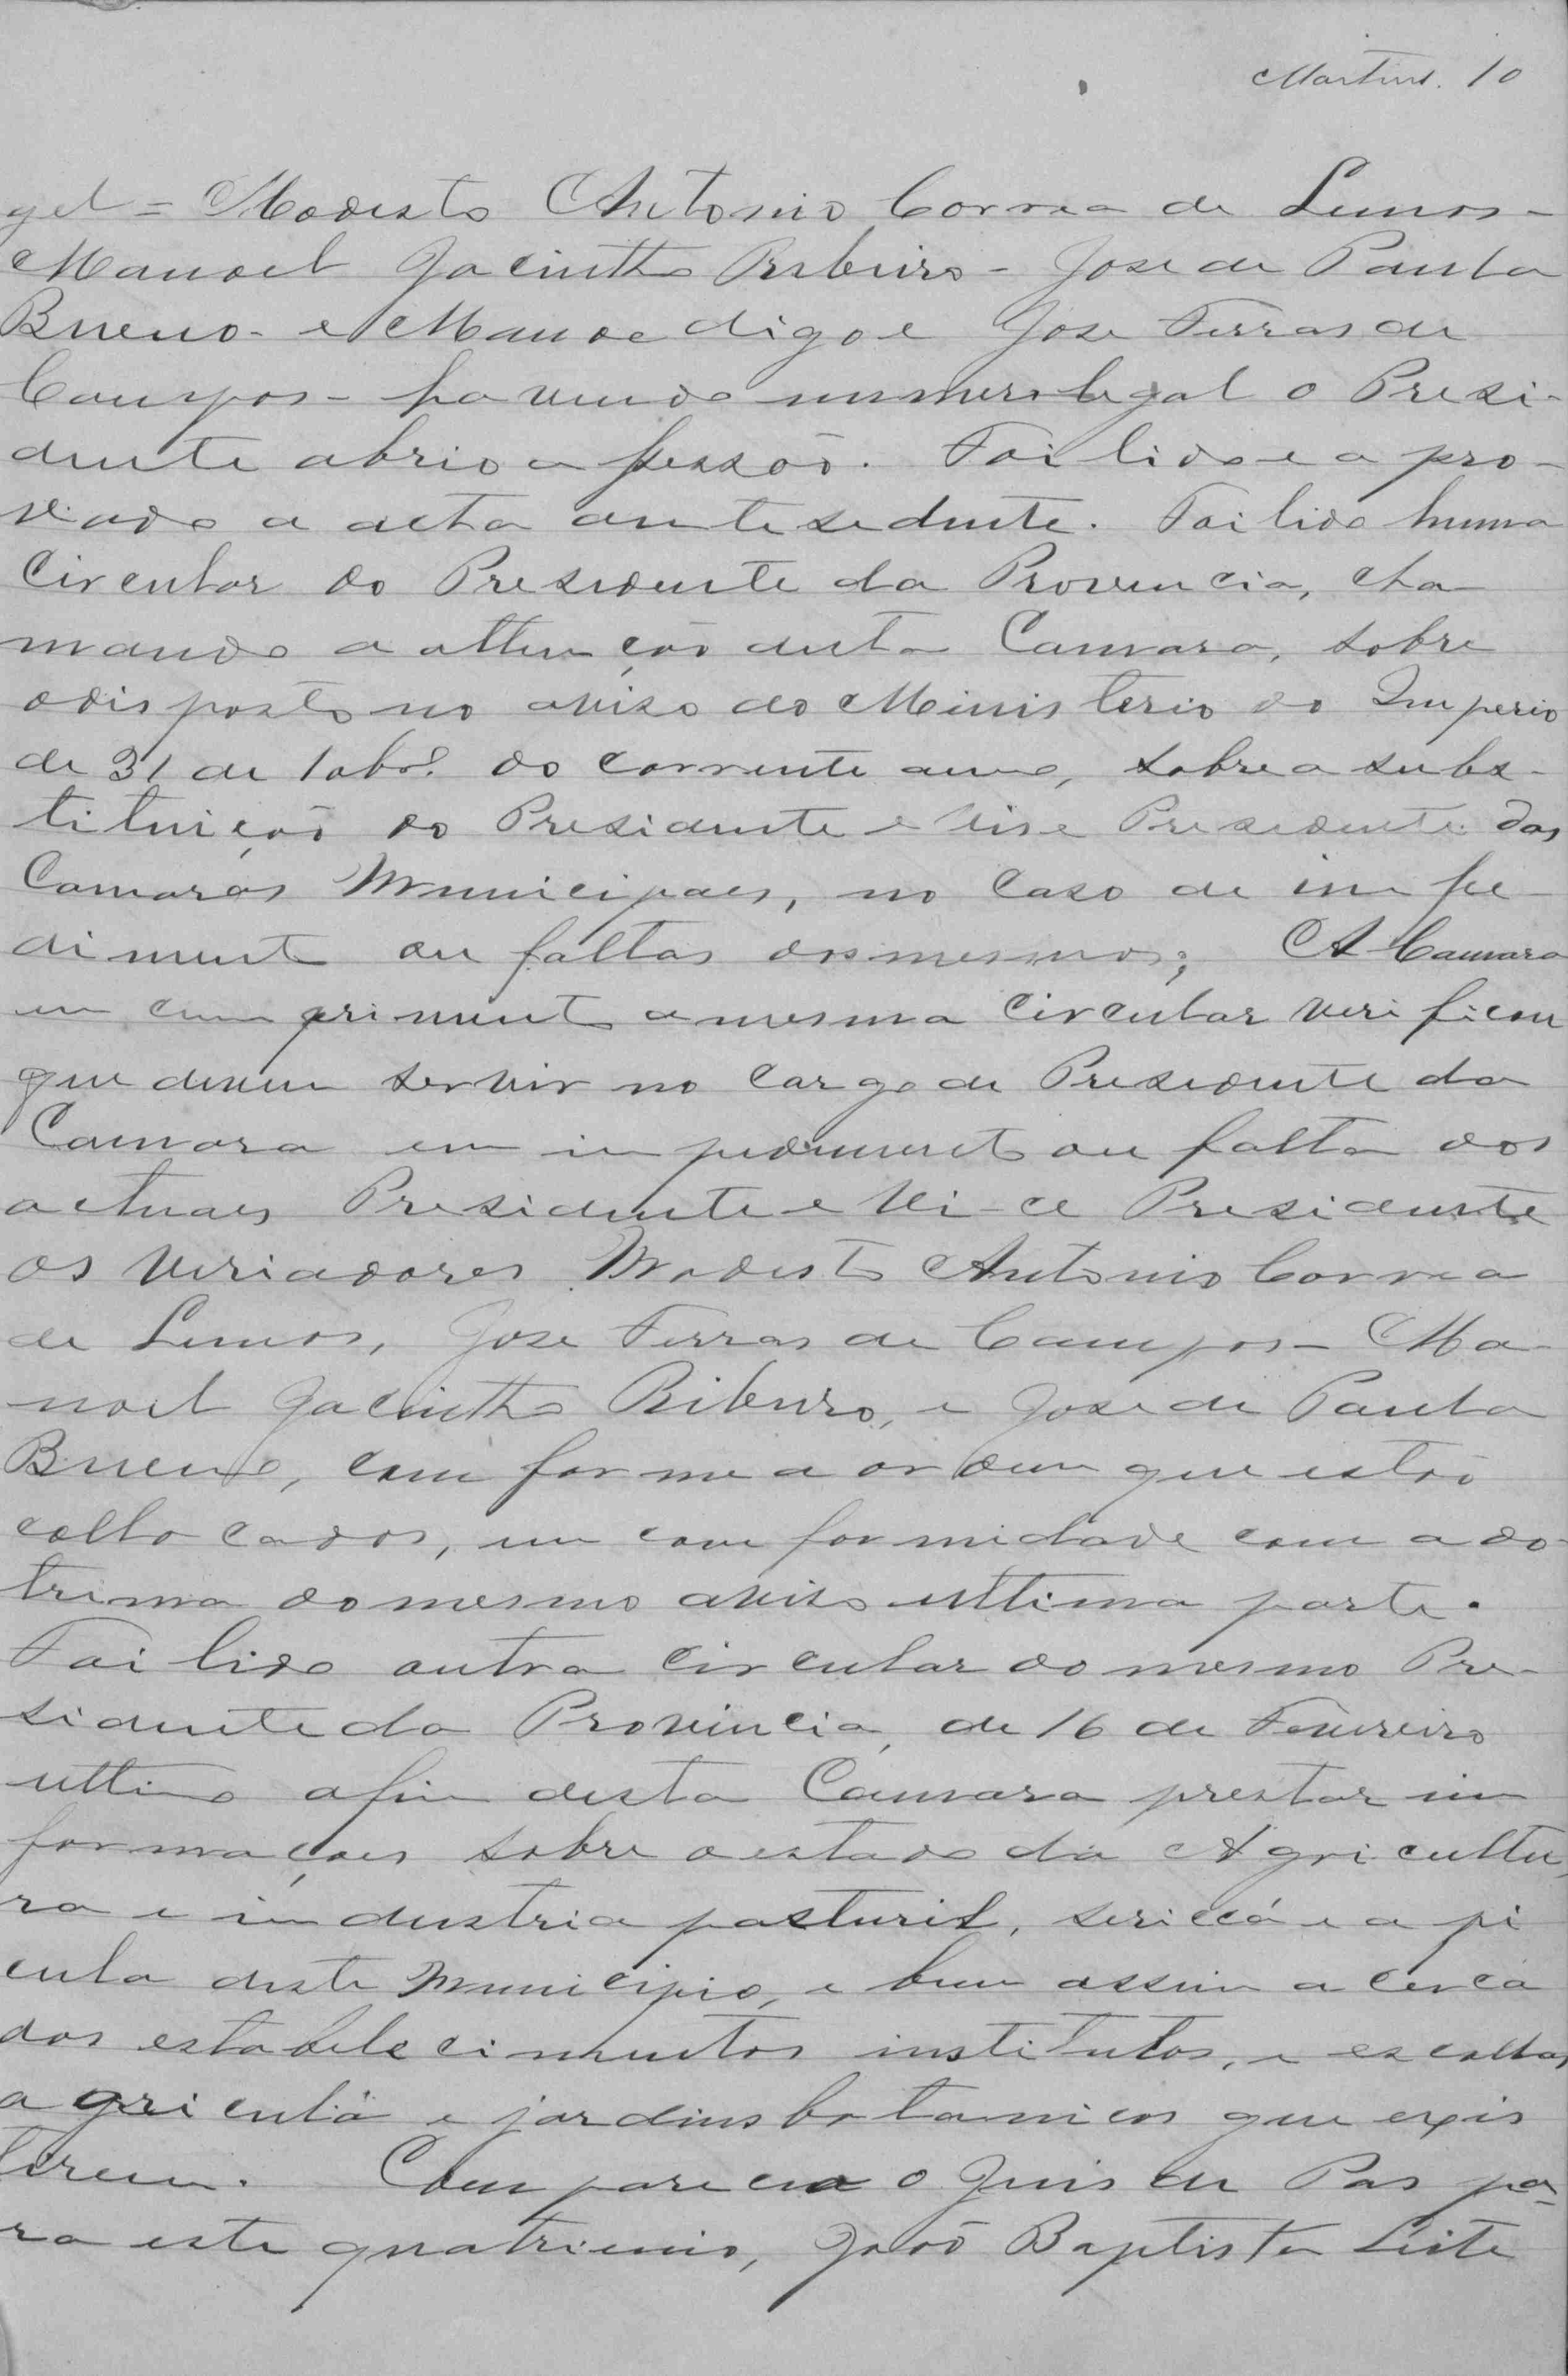 Martins. 10
gel = Modesto Antonio Correa de Lemos -
Manoel Jacintho Ribeiro - Jose de Paula
Bueno - e Manoe digo e Jose Ferras de
Campos - havendo numero legal o Presi-
dente abrio a sessão. Foi lido e apro-
vado a acta antesedente. Foi lido huma
Circular do Presidente da Provencia, cha
mando a attenção desta Camara, sobre
o disposto no aviso do Ministerio do Imperio
de 31 de 10br.o do corrente anno, sobre a subs-
tituição do Presidente e Vise Presidente das
Camaras Municipaes, no caso de impe
dimento ou faltas dos mesmos; A Camara
em cumprimento a mesma Circular verificou
que devem servir no cargo de Presidente da
Camara em impedimento ou falta dos
actuaes Presidente e Vi-ce Presidente
os Veriadores Modesto Antonio Correa
de Lemos, Jose Ferras de Campos - Ma-
noel Jacintho Ribeiro, e Jose de Paula
Bueno, comforme a ordem que estão
collocados, em comformidade com a do-
trina do mesmo aviso ultima parte.
Foi lido outra circular do mesmo Pre-
sidente da Provincia, de 16 de Fevereiro
ultimo afim desta Camara prestar in
formações sobre o estado da Agricultu,
ra e industria pasturil, sericcá e a pi
cula deste Municipio, e bem assim a cerca
dos estabelecimentos institutos, e escollas
agriculá e jardins botanicos que exis
tirem. Compareceo o Juis de Pas pa=
ra este quatrienio, João Baptista Leite